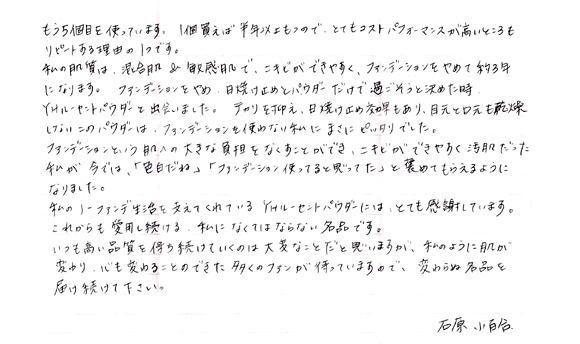 もう5個目を使っています。1個買えば半年以上もつので、とてもコストパフォーマンスが高いところも
リピートする理由の1つです。
私の肌質は、混合肌&敏感肌で、ニキビができやすく、ファンデーションをやめて約3年
になります。ファンデーションをやめ、日焼け止めとパウダーだけで過ごそうと決めた時、
YHルーセントパウダーと出会いました。テカリを抑え、日焼け止め効果もあり、目元も口元も乾燥
しないこのパウダーは、ファンデーションを使わない私にまさにピッタリでした。
ファンデーションという肌への大きな負担をなくすことができ、ニキビができやすく汚肌だった
私が今では、「色白だね」「ファンデーション使ってると思ってた」と褒めてもらえるように
なりました。
私のノーファンデ生活を支えてくれているYHルーセントパウダーには、とても感謝しています。
これからも愛用し続ける、私になくてはならない名品です。
いつも高い品質を保ち続けていくのは大変なことだと思いますが、私のように肌が
変わり、心も変わることのできた多くのファンが待っていますので、変わらぬ名品を
届け続けて下さい。
石原 小百合